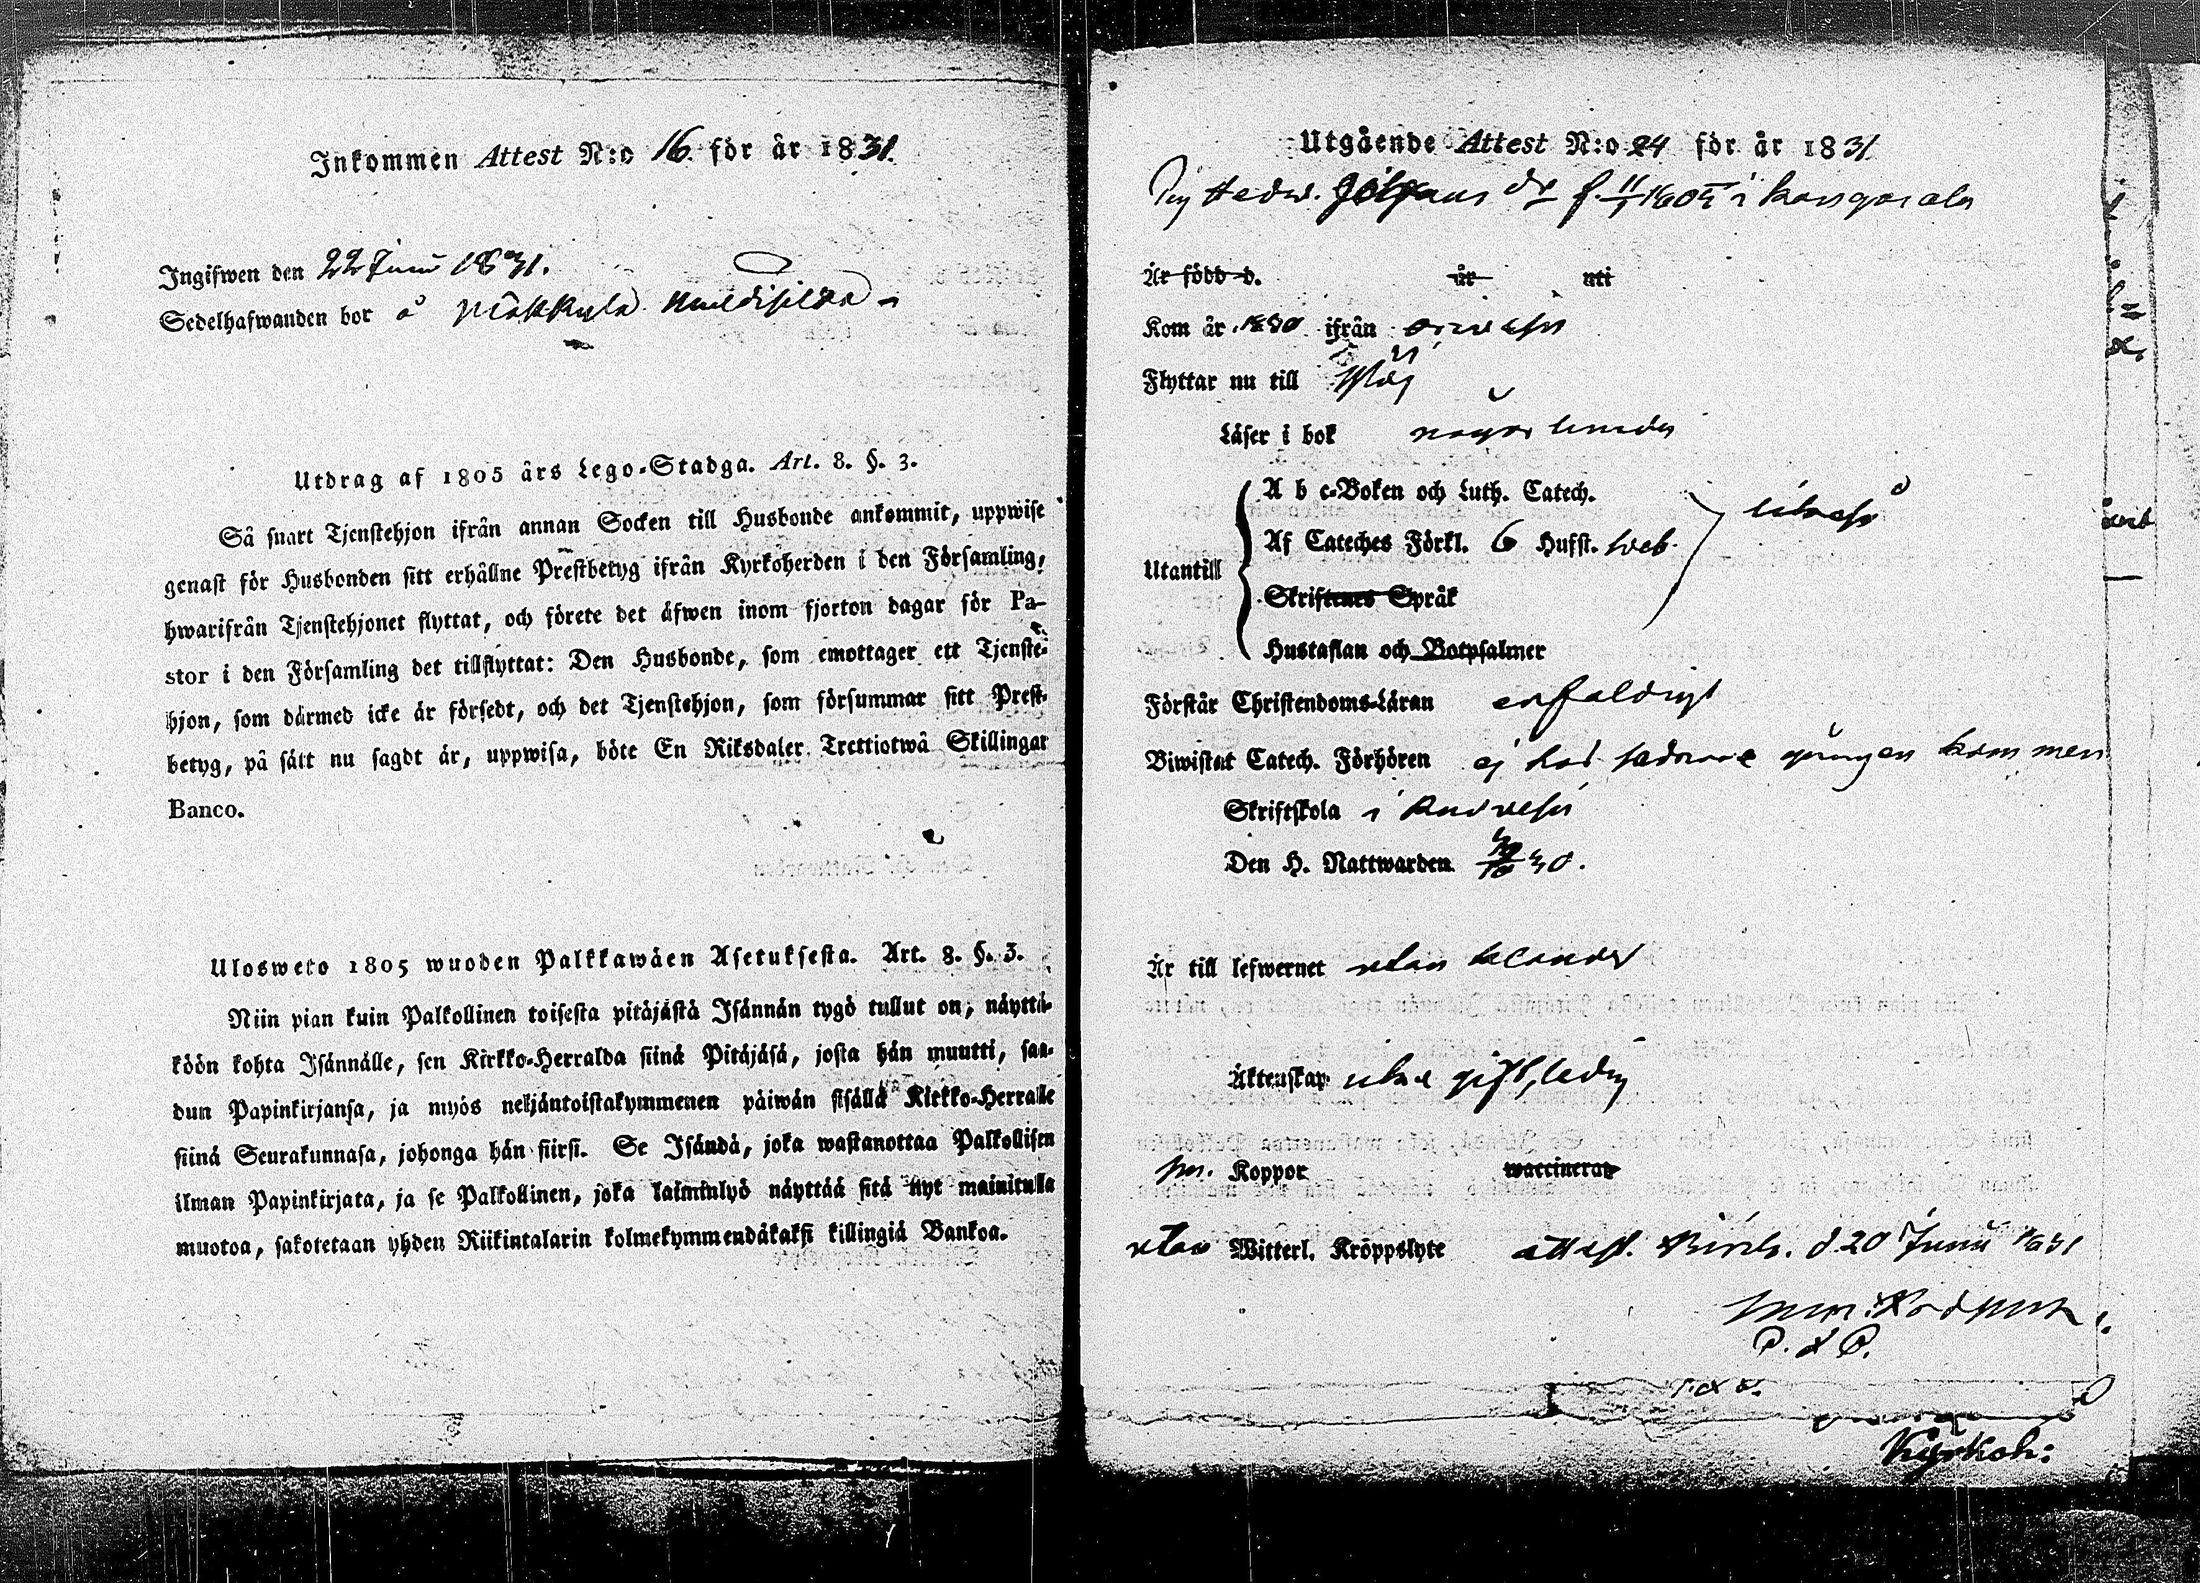 Inkommen Attest N:o 16. för år 1831.
Ingifwen den 22 Junii 1831.
Sedelhafwanden bor å
Utdrag af 1805 års Lego-Stadga. Art. 8. §. 3.
Så snart Tjenstehjon ifrån annan Socken till Husbonde ankommit, uppwise
genast för Husbonden sitt erhållne Prestbetyg ifrån Kyrkoherden i den Församling,
hwarifrån Tjenstehjonet flyttat, och förete det äfwen inom fjorton dagar för Pa-
stor i den Församling det tillflyttat: Den Husbonde, som emottager ett Tjenste-
hjon, som därmed icke är försedt, och det Tjenstehjon, som försummar sitt Prest-
betyg, på sätt nu sagdt är, uppwisa, böte En Riksdaler Trettiotwå Skillingar
Banco.
Ulosweto 1805 wuoden Palkkawäen Asetuksesta. Art. 8. §. 3.
Niin pian kuin Palkollinen toisesta pitäjästä Isännän tygö tullut on, näyttä-
köön kohta Isännälle, sen Kirkko-Herralda siinä Pitäjäsä, josta hän muutti, saa-
dun Papinkirjansa, ja myös neljäntoistakymmenen päiwän sisällä Kirkko-Herralle
siinä Seurakunnasa, johonga hän siirsi. Se Isändä, joka wastanottaa Palkollisen
ilman Papinkirjata, ja se Palkollinen, joka laiminlyö näyttää sitä nyt mainitulla
muotoa, sakotetaan yhden Riikintalarin kolmekymmendäkaksi killingiä Bankoa.
Utgående Attest N:o 24 för år 1831
Hedw. Johans dr f. 11/1 1805 i Kangasala
Är född d. år uti
Kom år 1830 ifrån Oriwesi
Flyttar nu till
Läser i bok någorlunda
A b c-Boken och Luth. Catech.
Utantill
Af Cateches Förkl. 6 Husst.
Skriftenes Språk
Hustaflan och Botpsalmer
likaså
Förstår Christendoms-Läran enfaldigt
Biwistat Catech. Förhören ej här sedan kommen
Skriftskola i
Den H. Nattwarden 30.
Är till lefwernet utan klander
Äktenskap icke gift, ledig
Koppor waccinerat
utan Witterl. Kröppslyte attest. d. 20 Junii 1831
Kyrkoh: